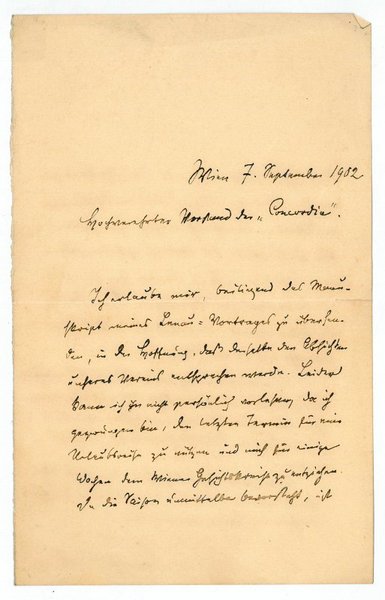 Wien 7. September 1902
Hochverehrter Vorstand der „Concordia“.
Ich erlaube mir, beiliegend das Manu-
skript meines Lenau-Vortrages zu übersen-
den, in der Hoffnung, daß derselbe den Absichten
unseres Vereins entsprechen werde. Leider
kann ich ihn nicht persönlich vorlesen, da ich
gezwungen bin, den letzten Termin für eine
Urlaubsreise zu nützen und mich für einige
Wochen dem Wiener Gesichtskreise zu entziehen.
Da die Saison unmittelbar bevorsteht, ist